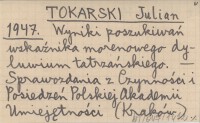 TOKARSKI Julian
1947. Wyniki poszukiwań
wskaźnika morenowego dy-
luwium tatrzańskiego.
Sprawozdania z Czynności i
Posiedzeń Polskiej Akademii
Umiejętności (Kraków)